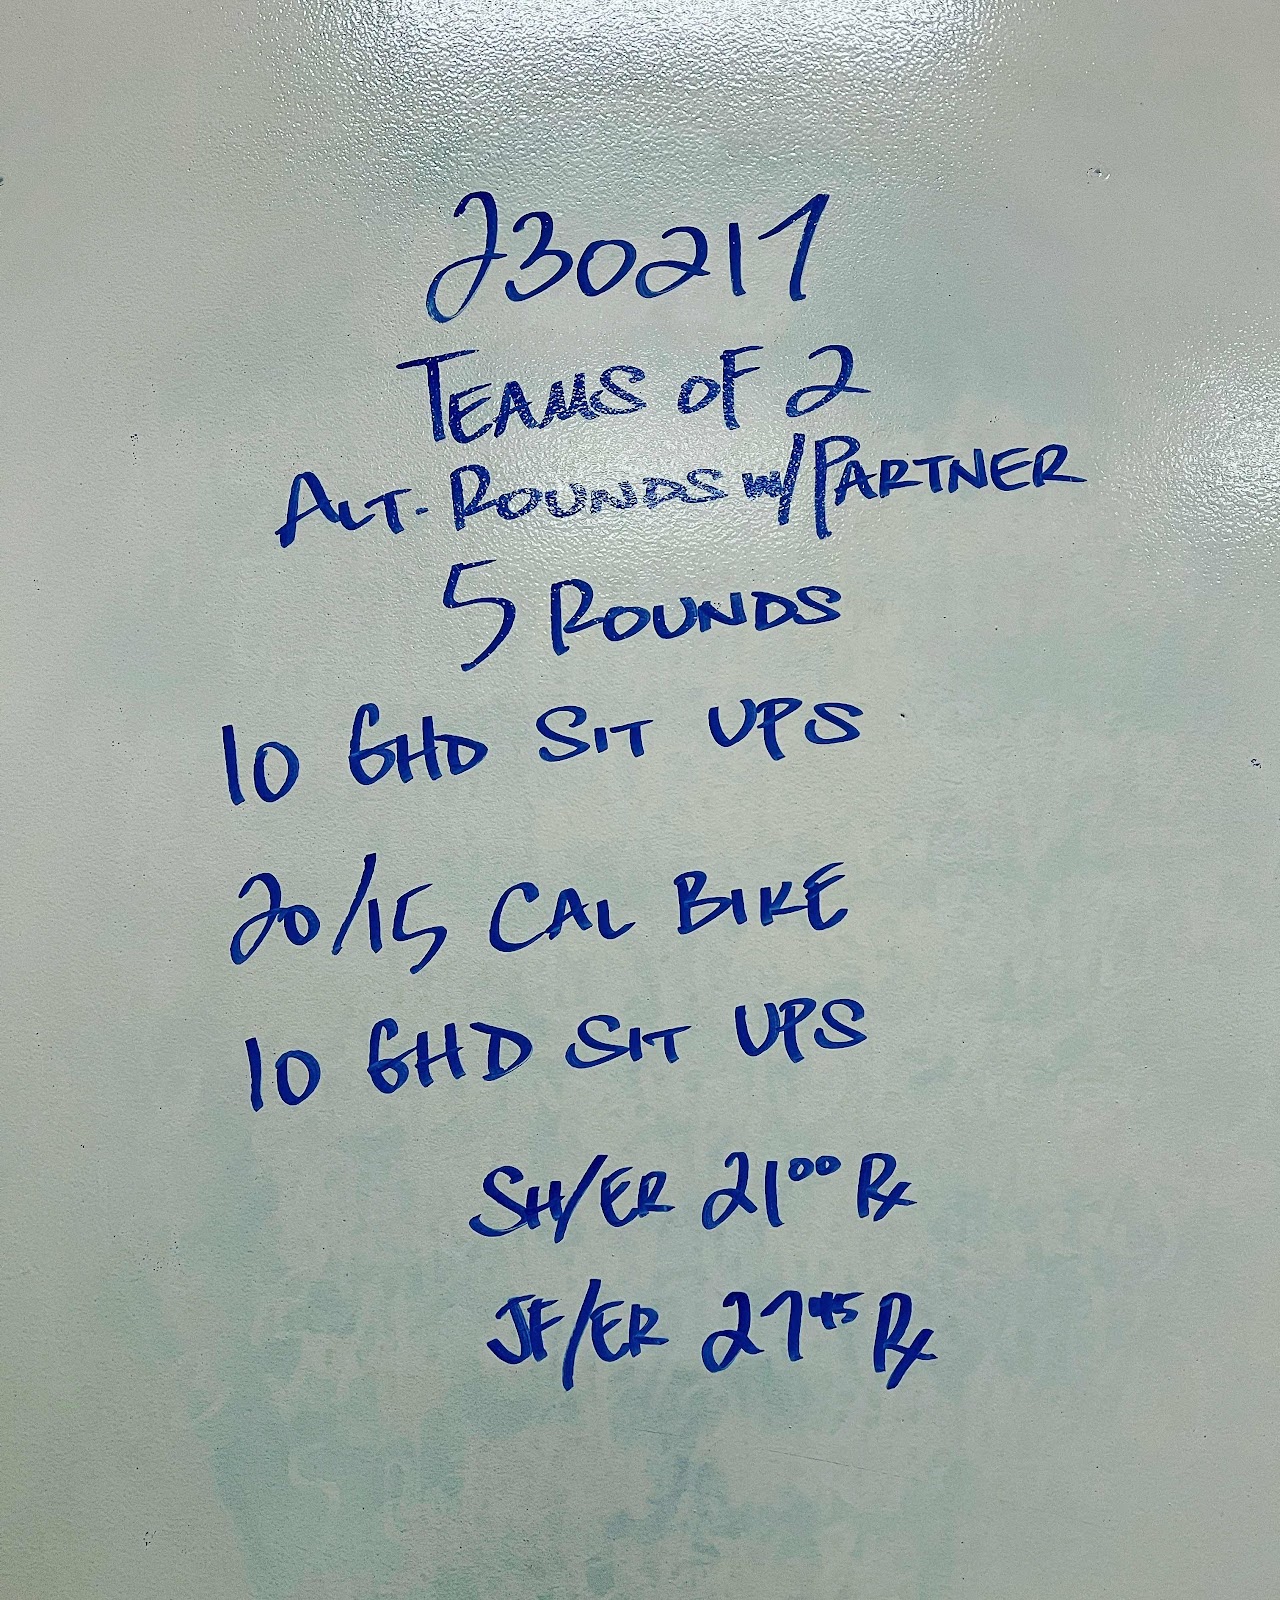 230217
TEAMS OF 2
ALT. ROUNDS W/PARTNER
5 ROUNDS
10 GHD SIT UPS
20/15 CAL BIKE
10 GHD SIT UPS
SH/ER 21⁰⁰ Rx
JF/ER 27⁴⁵ Rx